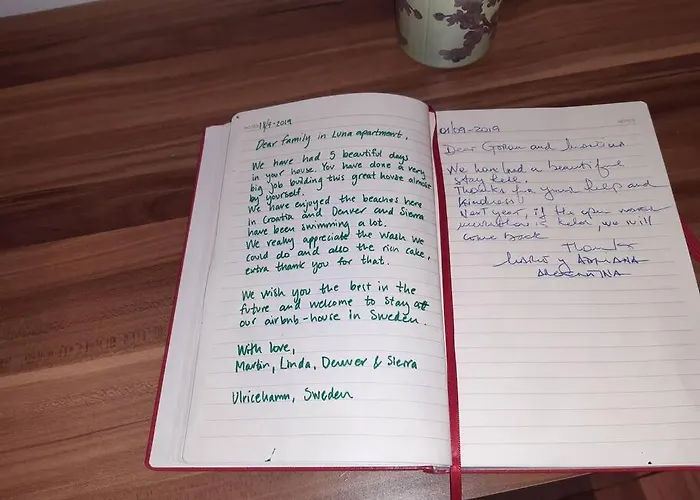 1/9-2019
Dear family in Luna apartment,
We have had 5 beautiful days
in your house. You have done a very
big job building this great house almost
by yourself.
We have enjoyed the beaches here
in Croatia and Denver and Sierra
have been swimming a lot.
We really appreciate the wash we
could do and also the rich cake,
extra thank you for that.
We wish you the best in the
future and welcome to stay at
our airbnb-house in Sweden.
With love,
Martin, Linda, Denver & Sierra
Ulricehamn, Sweden
01/09-2019
Dear Goran and
We have had a beautiful
stay here.
Thanks for your help and
Kindness!
Next year, if the open water
is here, we will
come back
Thanks
Mario y Adriana
ARGENTINA